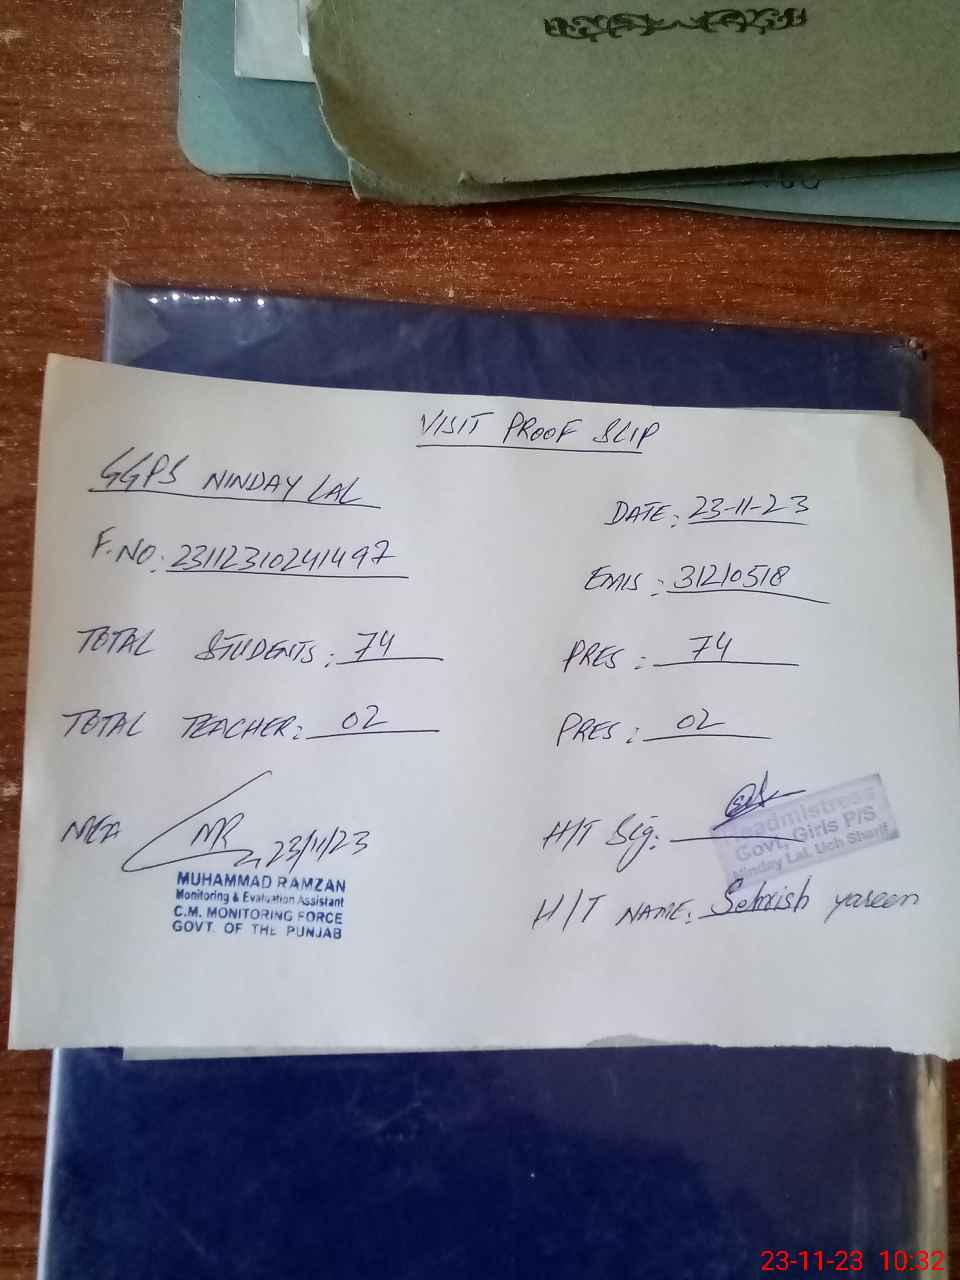 VISIT PROOF SLIP
GGPS NINDAY LAL
DATE: 23-11-23
F.NO: 23112310241497
EMIS: 31210518
TOTAL STUDENTS: 74
PRES: 74
TOTAL TEACHER: 02
PRES: 02
MEA MR 23/11/23
H/T Sig:
Headmistress
Govt, Girls P/S
Ninday Lal, Uch Sharif
MUHAMMAD RAMZAN
Monitoring & Evaluation Assistant
C.M. MONITORING FORCE
GOVT. OF THE PUNJAB
H/T NAME: Sehrish yaseen
23-11-23 10:32